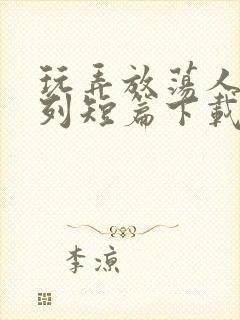 玩弄放荡人
列短篇下载
李凉